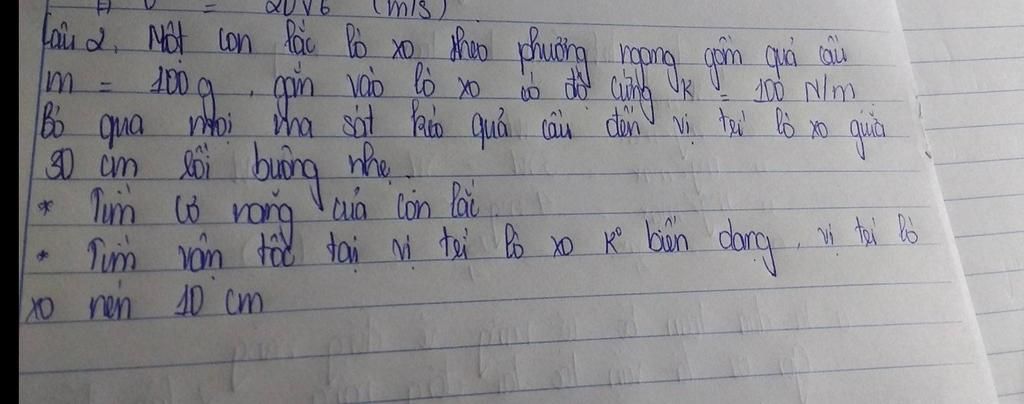 = 20√6 (m/s)
Câu 2. Một con lắc lò xo theo phương ngang gồm quả cầu
m = 100g, gắn vào lò xo có độ cứng K = 100 N/m
Bỏ qua mọi ma sát kéo quả cầu đến vị trí lò xo giãn
30 cm rồi buông nhẹ.
* Tìm cơ năng của con lắc
* Tìm vận tốc tại vị trí lò xo K° biến dạng, vị trí lò
xo nén 10 cm